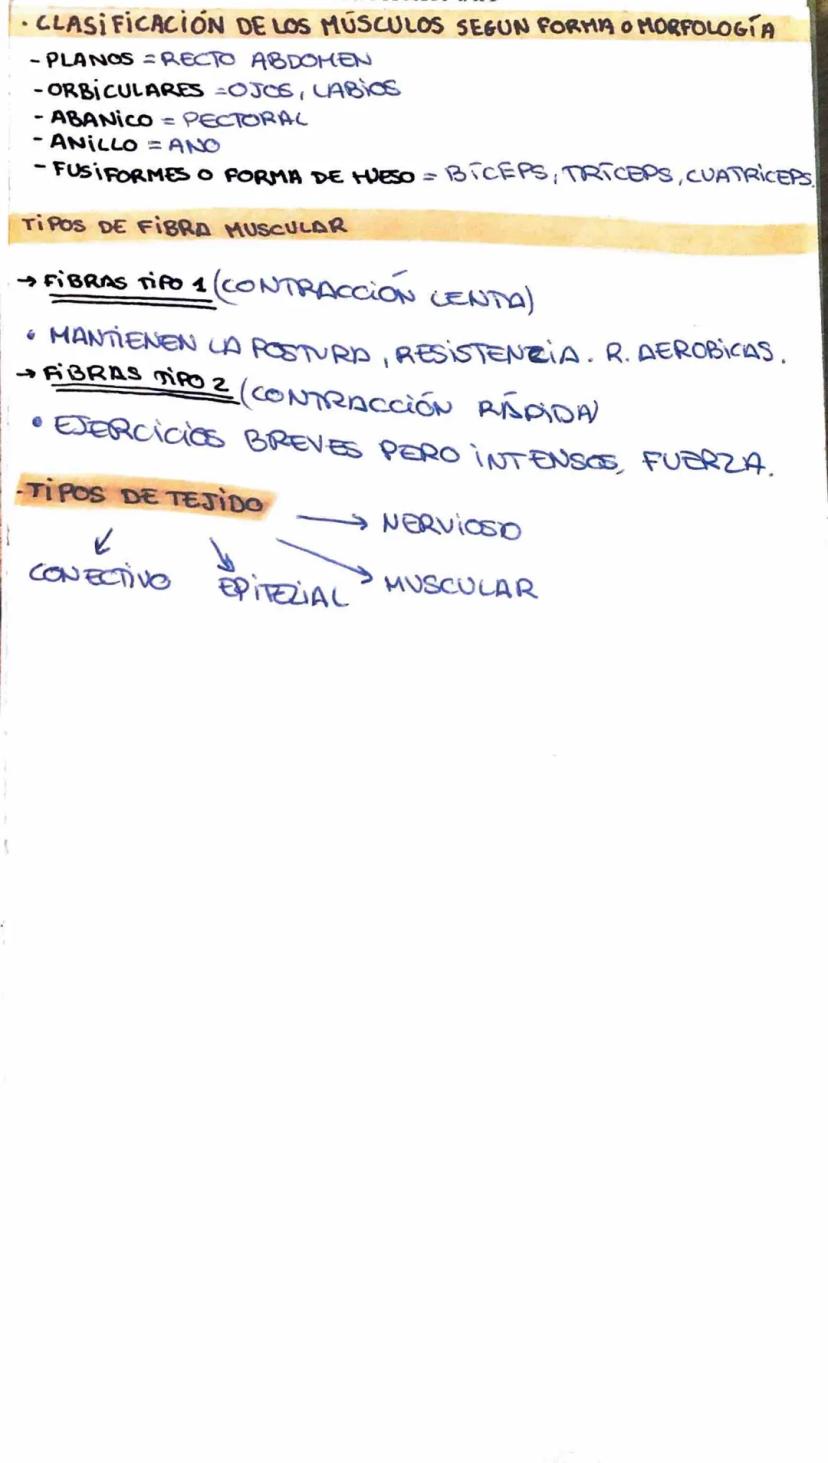 · CLASIFICACIÓN DE LOS MÚSCULOS SEGUN FORMA O MORFOLOGÍA
- PLANOS = RECTO ABDOMEN
- ORBICULARES = OJOS, LABIOS
- ABANICO = PECTORAL
- ANILLO = ANO
- FUSIFORMES O FORMA DE HUESO = BÍCEPS, TRÍCEPS, CUATRICEPS.
TIPOS DE FIBRA MUSCULAR
→ FIBRAS TIPO 1 (CONTRACCIÓN LENTA)
• MANTIENEN LA POSTURA, RESISTENZIA. R. AEROBICAS.
→ FIBRAS TIPO 2 (CONTRACCIÓN RÁPIDA)
• EJERCICIOS BREVES PERO INTENSOS, FUERZA.
- TIPOS DE TEJIDO
→ NERVIOSO
CONECTIVO EPITEZIAL MUSCULAR